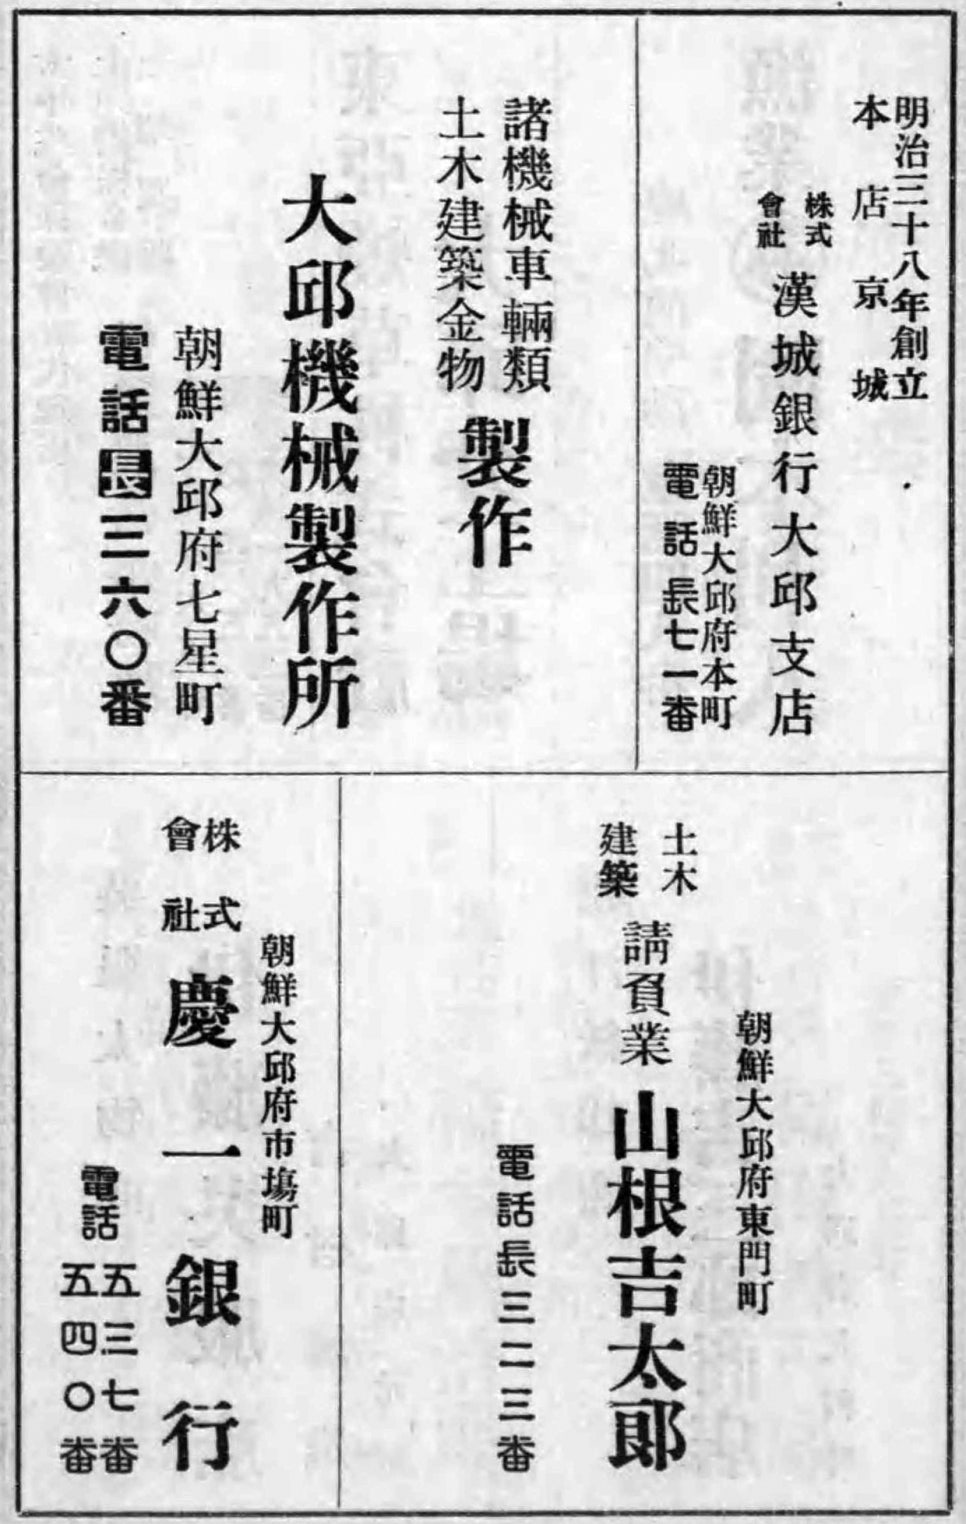 明治三十八年創立
本店京城
株式
會社
漢城銀行大邱支店
朝鮮大邱府本町
電話長七一番
諸機械車輛類
土木建築金物
製作
大邱機械製作所
朝鮮大邱府七星町
電話長三六〇番
朝鮮大邱府東門町
土木
建築
請負業 山根吉太郎
電話長三二三番
朝鮮大邱府市場町
株式
會社
慶一銀行
電話
五三七番
五四〇番